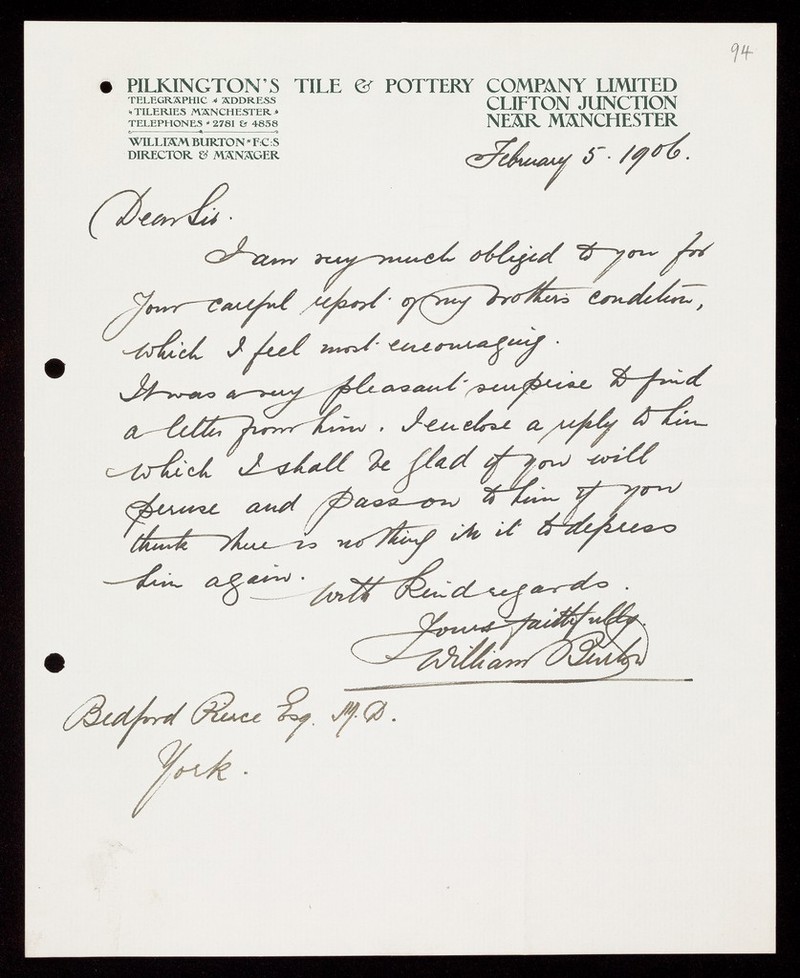 94
PILKINGTON'S TILE & POTTERY COMPANY LIMITED
TELEGRAPHIC • ADDRESS
• TILERIES MANCHESTER •
TELEPHONES • 2781 & 4858
WILLIAM BURTON • F.C.S
DIRECTOR & MANAGER
CLIFTON JUNCTION
NEAR MANCHESTER
February 5. 1906.
Dear Sir.
I am very much obliged to you for
your careful report of my brothers condition,
which I feel most encouraging.
It was a very pleasant surprise to find
a letter from him. I enclose a reply to him
which I shall be glad if you will
peruse and pass on to him if you
think there is nothing in it to depress
him again.
With kind regards.
Yours faithfully.
William Burton
Bedford Pierce Esq. M.D.
York.